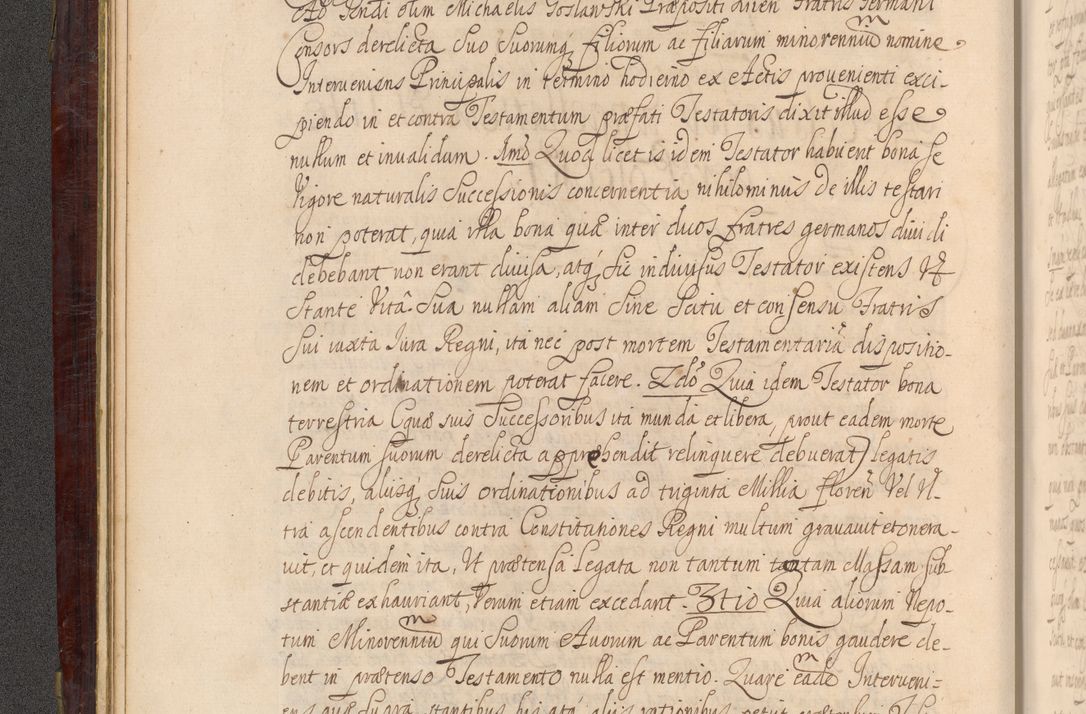 Ad Gndi olim Michaelis Joslawski Præpositi dnien Fratris Germani
Consors derelicta suo suorumq filiorum ac filiarum minorenniu͂ nomine
Interveniens Principalis in termino hodierno ex Actis provenienti exci-
piendo in et contra Testamentum præfati Testatoris dixit illud esse
nullum et invalidum. Imo Quod licet is idem Testator habuerit bona se
Vigore naturalis Successionis concernentia nihilominus de illis testari
non poterat, quia illa bona quæ inter duos fratres germanos dividi
debebant non erant divisa, atq sic indivisus Testator existens Ut
stante Vitâ sua nullam aliam sine scitu et consensu Fratris
sui iuxta Iura Regni, ita nec post mortem Testamentaria͂ dispositio-
nem et ordinationem poterat facere. 2do Quia idem Testator bona
terrestria (quæ suis Successoribus ita munda et libera, prout eadem morte
Parentum suorum derelicta apprehendit relinquere debuerat) legatis
debitis, aliisq suis ordinationibus ad triginta Millia floren Vel U-
tra ascendentibus contra Constitutiones Regni multum gravavit et onera-
vit, et quidem ita, Ut prætensa legata non tantum tantam Massam sub-
stantiæ exhauriant, Verum etiam excedant. 3tio Quia aliorum Nepo-
tum Minorenniu͂ qui suorum Avorum ac Parentum bonis gaudere de-
bent in prætenso Testamento nulla est mentio. Quare eadem Interveni=
ens quæ supra, stantibus his atq aliis rationibus petit